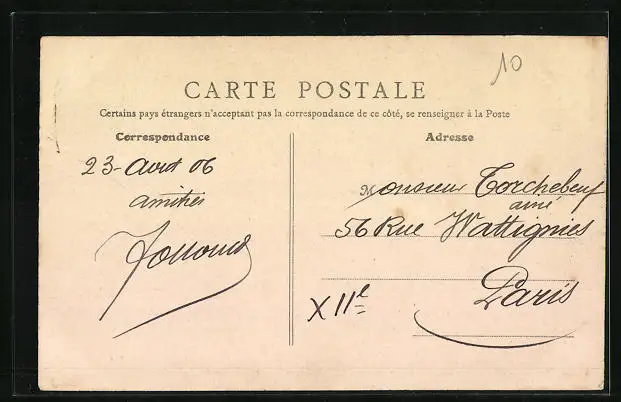 10
CARTE POSTALE
Certains pays étrangers n'acceptant pas la correspondance de ce côté, se renseigner à la Poste
Correspondance
Adresse
23 - Aout 06
amitiés
Monsieur Torchebeuf
ainé
56 Rue Wattignies
Paris
XIIe